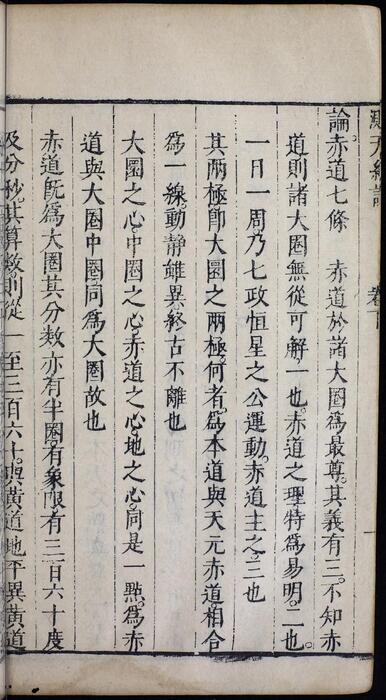 測天約說 卷下 一
論赤道七條 赤道於諸大圈為最尊。其義有三。不知赤
道則諸大圈無從可解。一也。赤道之理特為易明。二也。
一日一周。乃七政恒星之公運動。赤道主之。三也
其兩極卽大圜之兩極。何者。為本道與天元赤道相合
為一線。動靜雖異。終古不離也
大圜之心。中圈之心。赤道之心。地之心。同是一㸃。為赤
道與大圈中圈同為大圈故也
赤道旣為大圈其分数亦有半圈。有象限有三百六十度
及分秒。其算数則從一至三百六十。與黃道地平異黃道